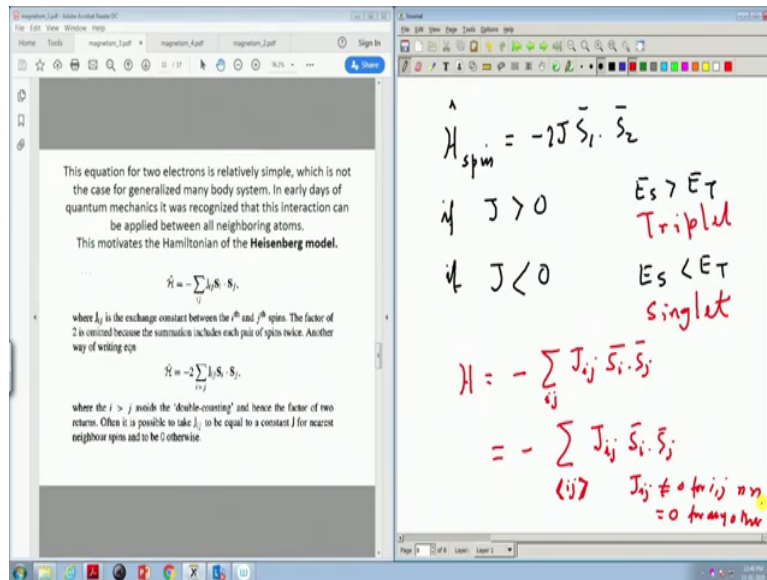 magnetism_3.pdf - Adobe Acrobat Reader DC
File Edit View Window Help
Home Tools magnetism_3.pdf × magnetism_4.pdf magnetism_2.pdf Sign In
11 / 17 Share
This equation for two electrons is relatively simple, which is not
the case for generalized many body system. In early days of
quantum mechanics it was recognized that this interaction can
be applied between all neighboring atoms.
This motivates the Hamiltonian of the Heisenberg model.
Ĥ = − ∑ij Jij Si · Sj,
where Jij is the exchange constant between the ith and jth spins. The factor of
2 is omitted because the summation includes each pair of spins twice. Another
way of writing eqn
Ĥ = −2 ∑i>j Jij Si · Sj,
where the i > j avoids the 'double-counting' and hence the factor of two
returns. Often it is possible to take Jij to be equal to a constant J for nearest
neighbour spins and to be 0 otherwise.
File Edit View Page Tools Options Help
Ĥspin = −2J S̄1 . S̄2
if J > 0 ES > ET
Triplet
if J < 0 ES < ET
Singlet
H = − ∑ij Jij S̄i . S̄j
= − ∑<ij> Jij S̄i . S̄j
Jij ≠ 0 for i,j nn
= 0 for any other
Page of 8 Layer: Layer 1